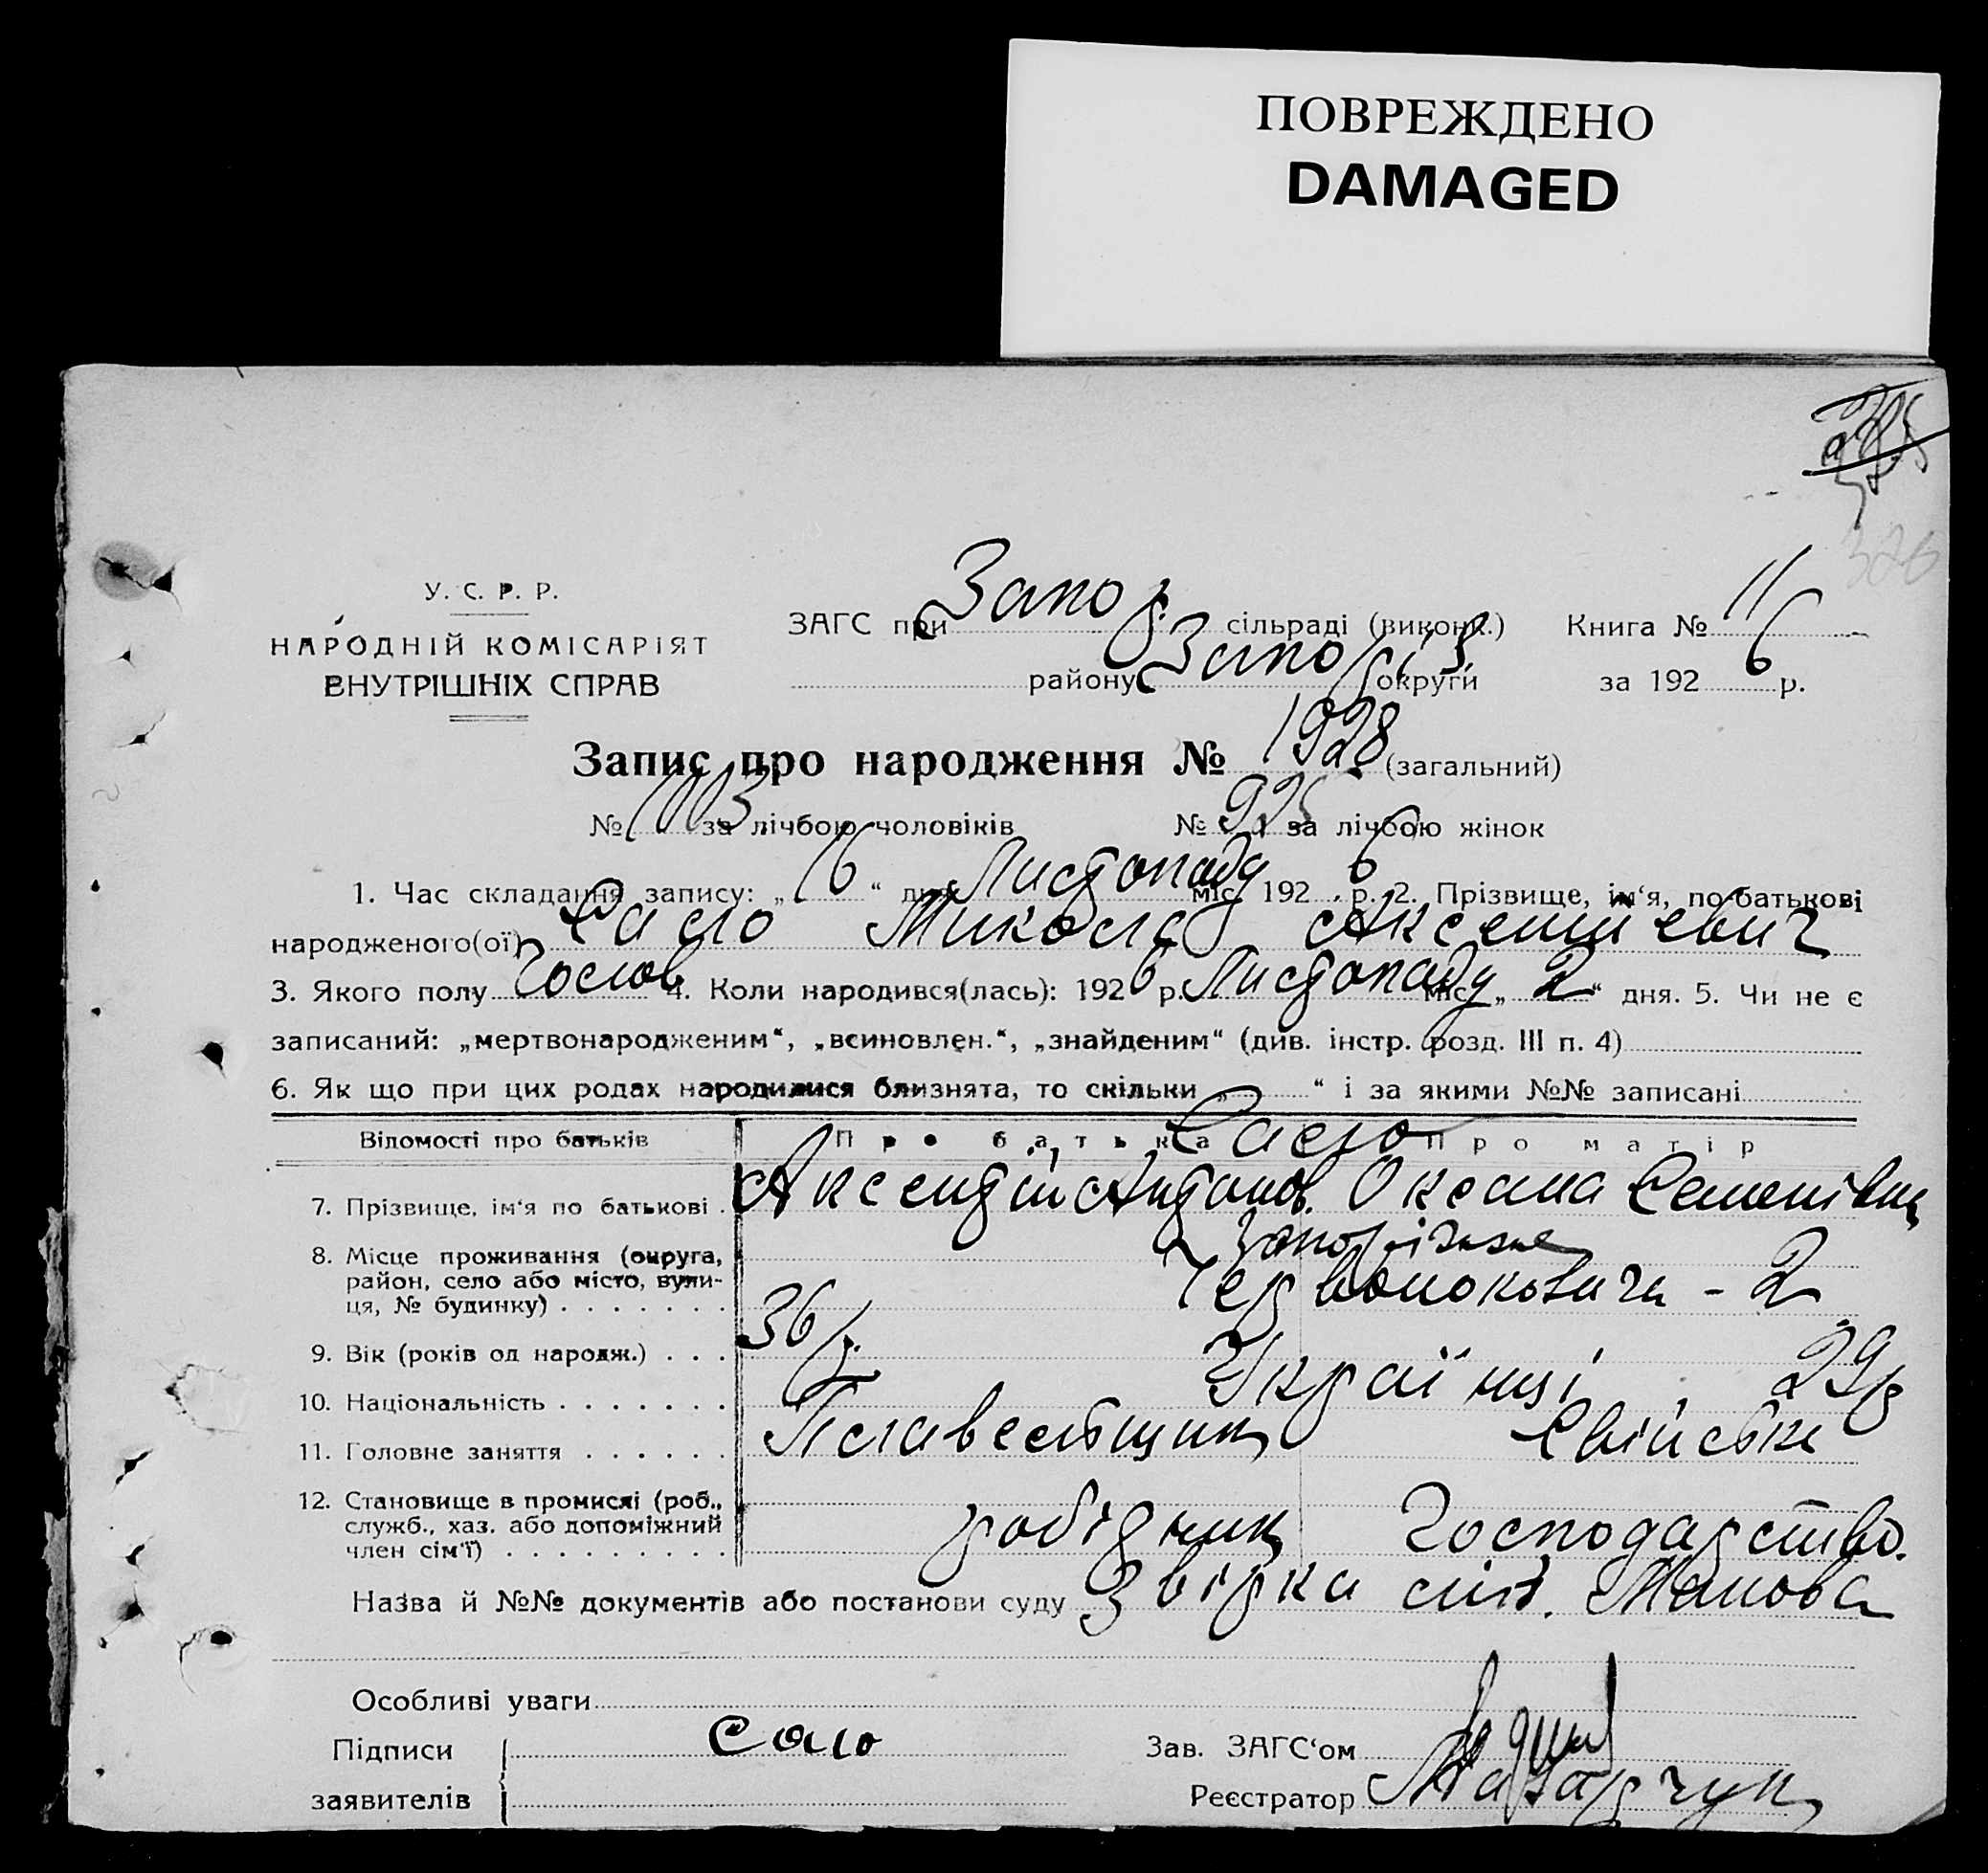 ПОВРЕЖДЕНО
DAMAGED
326
У. С. Р. Р.
НАРОДНІЙ КОМІСАРІЯТ
ВНУТРІШНІХ СПРАВ
ЗАГС при Запор. сільраді (виконк.) Книга № 11
району Запоріз округи за 1926 р.
Запис про народження № 1928 (загальний)
№ 1003 за лічбою чоловіків № 925 за лічбою жінок
1. Час складання запису: „16“ дня Листопаду міс. 1926 р. 2. Прізвище, ім'я, по-батькові
народженого(ої) Сало Микола Аксентіевич
3. Якого полу Чолов 4. Коли народився(лась): 1926 р. Листопаду міс. „2“ дня. 5. Чи не є
записаний: „мертвонародженим“, „всиновлен.“, „знайденим“ (див. інстр. розд. III п. 4)
6. Як що при цих родах народилися близнята, то скільки „ “ і за якими №№ записані
Відомості про батьків Про батька Про матір
Сало
7. Прізвище, ім'я по батькові . Аксентій Антонов. Оксана Семенівна
8. Місце проживання (округа, район, село або місто, вули-ця, № будинку) . . . . . . . Запоріжже
Червонокозача - 2
9. Вік (років од народж.) . . . 36 р. 29 р
10. Національність . . . . . . . Українці
11. Головне заняття . . . . . . Плавельщик Свійське
12. Становище в промислі (роб., служб., хаз. або допоміжний член сім'ї) . . . . . . . . . робідник Господарство.
Назва й №№ документів або постанови суду Звірка
Особливі уваги
Підписи Сало Зав. ЗАГС'ом
заявителів Реєстратор Назарчук